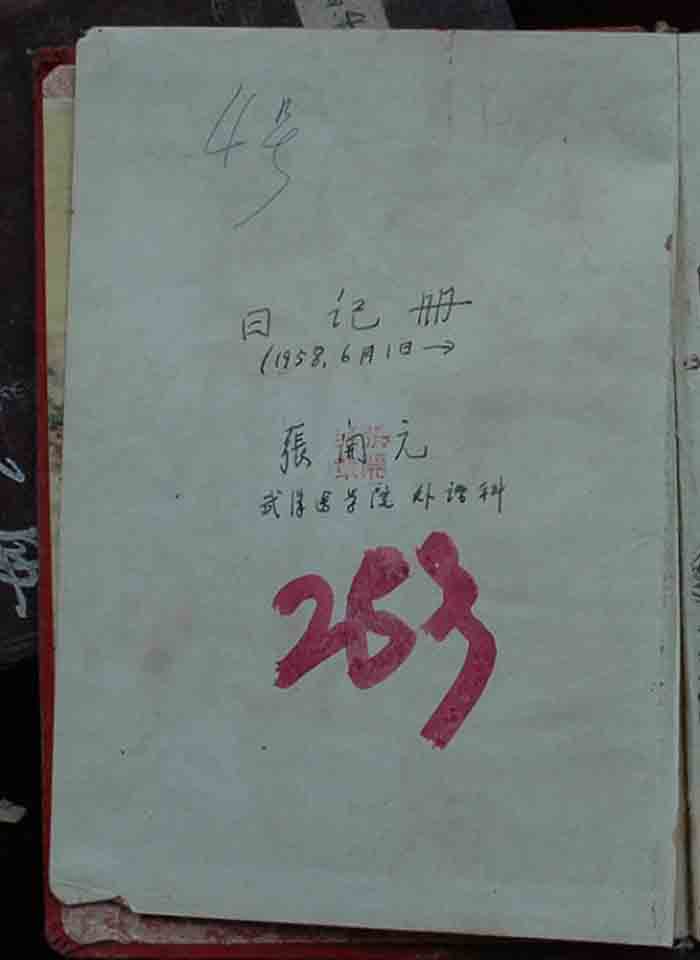 4号
日 记 册
(1958.6月1日→
張 開 元
武漢医学院 外語科
25号